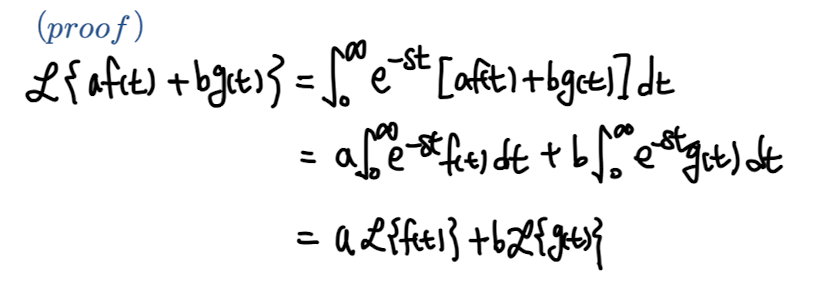 (proof)
ℒ{af(t) + bg(t)} = ∫₀^∞ e^{-st} [af(t) + bg(t)] dt
= a∫₀^∞ e^{-st} f(t) dt + b∫₀^∞ e^{-st} g(t) dt
= a ℒ{f(t)} + b ℒ{g(t)}